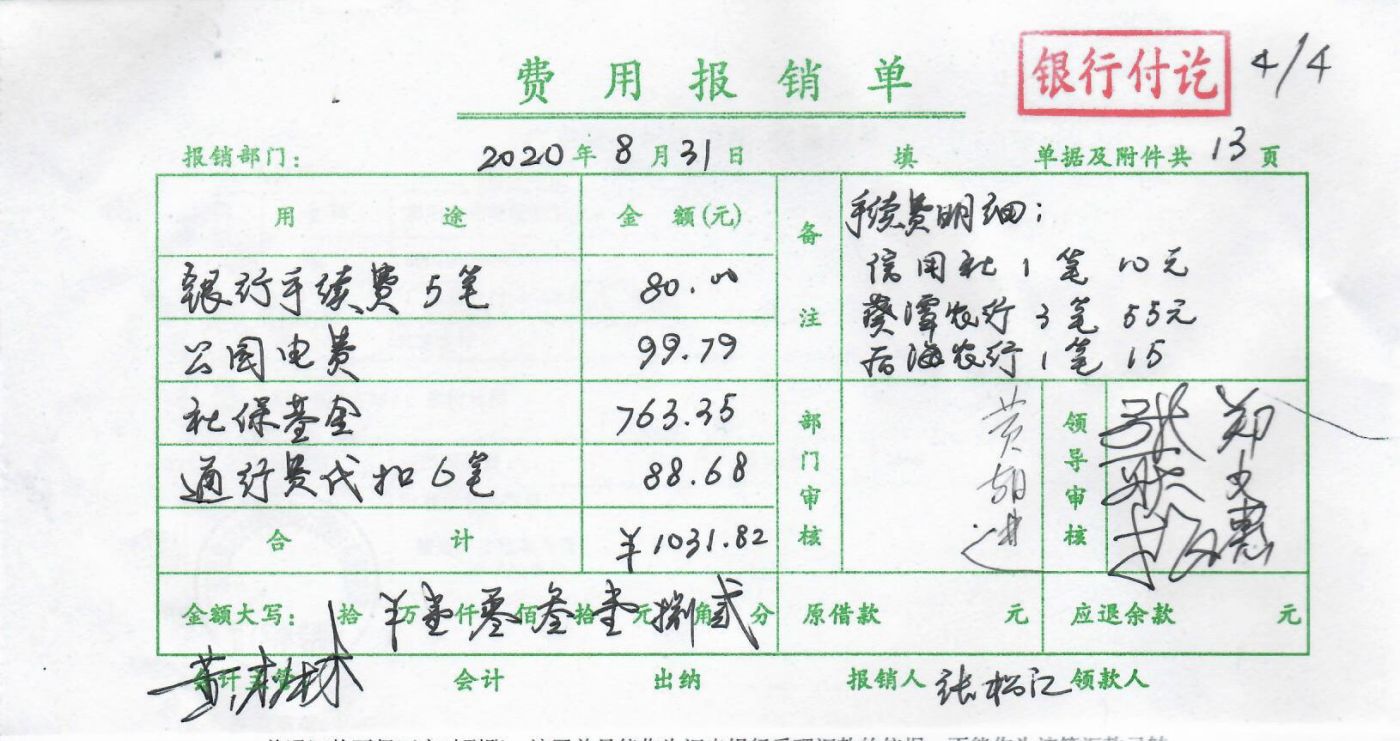 费用报销单
银行付讫 4/4
报销部门: 2020年8月31日 填 单据及附件共13页
用途 金额(元) 备注
手续费明细:
信用社1笔10元
葵潭农行3笔55元
后海农行1笔15
银行手续费5笔 80.00
公园电费 99.79
社保基金 763.35
通行费代扣6笔 88.68
合计 ¥1031.82
部门审核 领导审核
郑文惠
金额大写: 拾¥万壹仟零佰叁拾壹元捌角贰分 原借款 元 应退余款 元
会计主管 会计 出纳 报销人 张松江 领款人